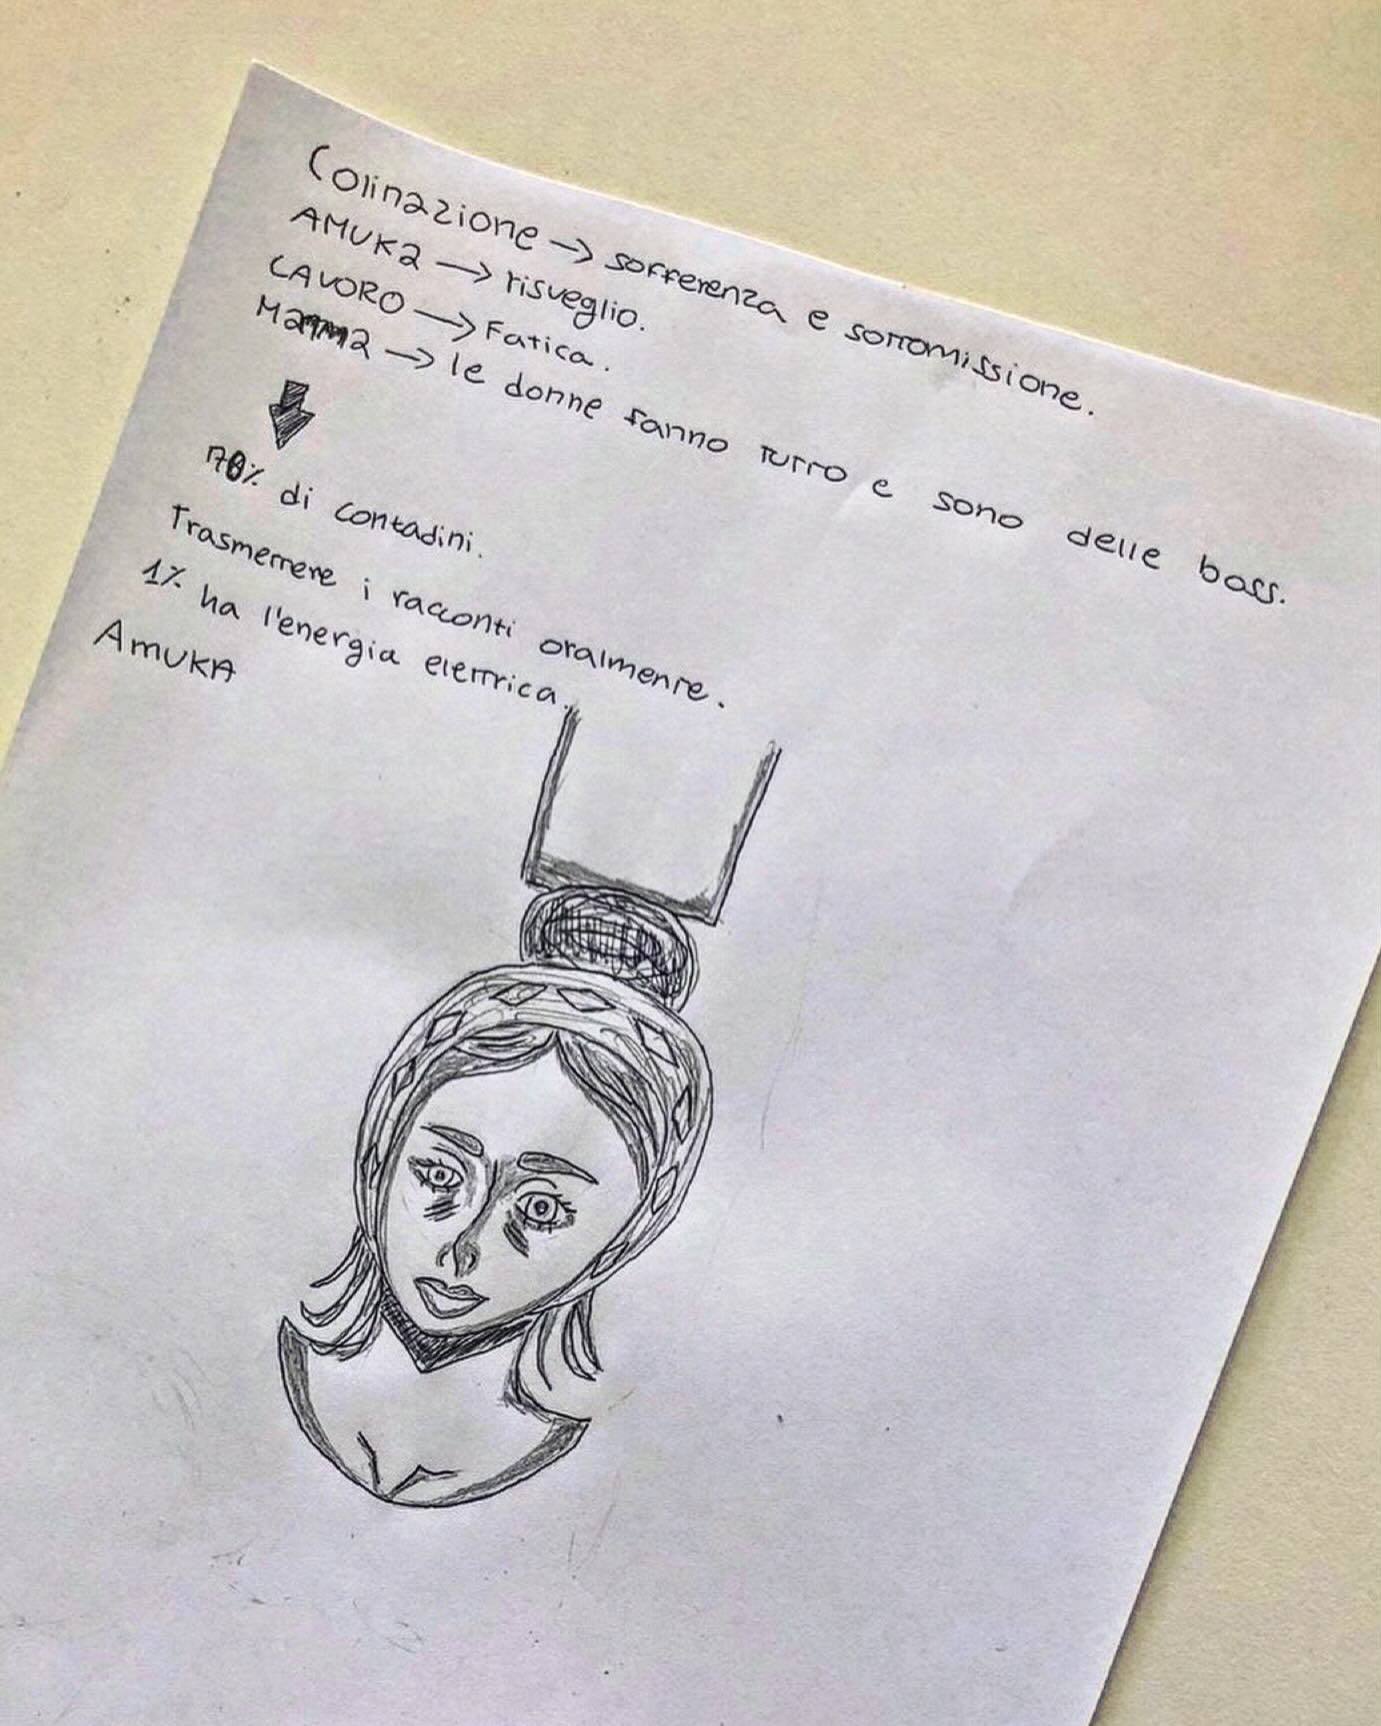 Colinazione → sofferenza e sottomissione.
AMUKa → risveglio.
LAVORO → Fatica.
Mamma → le donne fanno tutto e sono delle boss.
70% di contadini.
Trasmettere i racconti oralmente.
1% ha l'energia elettrica.
AMUKA